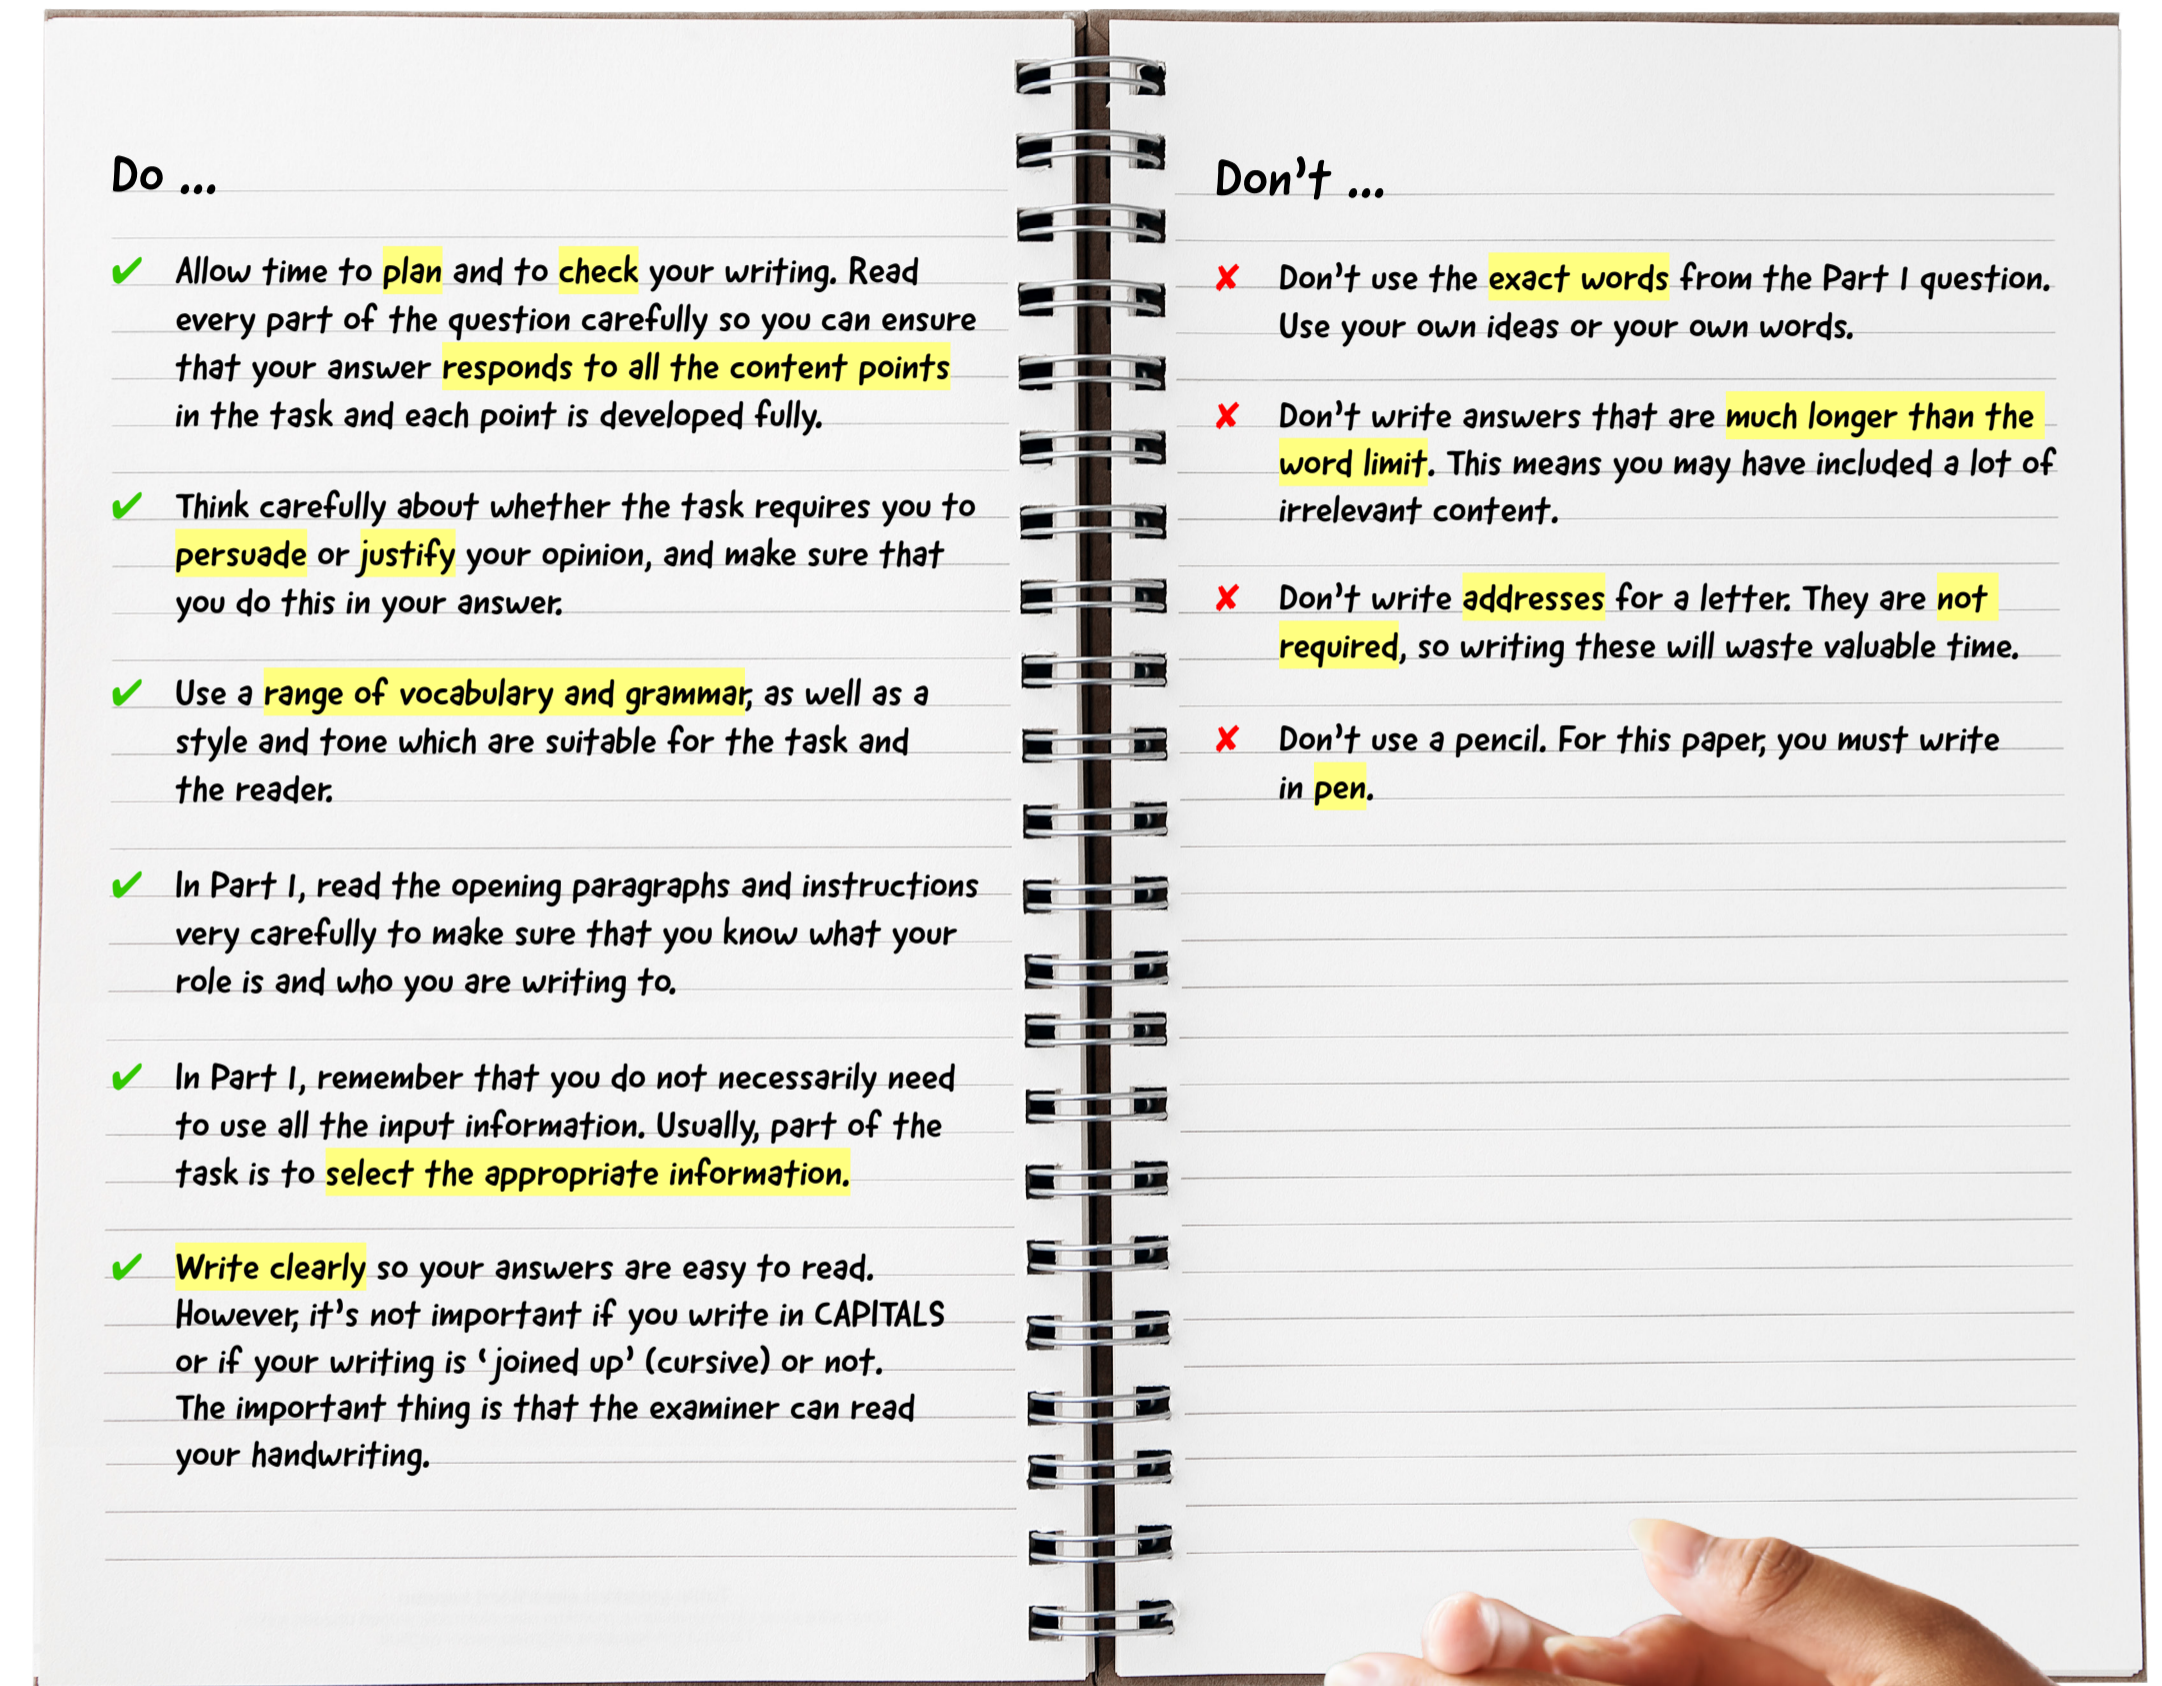 Do ...
✔ Allow time to plan and to check your writing. Read
every part of the question carefully so you can ensure
that your answer responds to all the content points
in the task and each point is developed fully.
✔ Think carefully about whether the task requires you to
persuade or justify your opinion, and make sure that
you do this in your answer.
✔ Use a range of vocabulary and grammar, as well as a
style and tone which are suitable for the task and
the reader.
✔ In Part 1, read the opening paragraphs and instructions
very carefully to make sure that you know what your
role is and who you are writing to.
✔ In Part 1, remember that you do not necessarily need
to use all the input information. Usually, part of the
task is to select the appropriate information.
✔ Write clearly so your answers are easy to read.
However, it's not important if you write in CAPITALS
or if your writing is ‘joined up’ (cursive) or not.
The important thing is that the examiner can read
your handwriting.
Don't ...
✘ Don't use the exact words from the Part 1 question.
Use your own ideas or your own words.
✘ Don't write answers that are much longer than the
word limit. This means you may have included a lot of
irrelevant content.
✘ Don't write addresses for a letter. They are not
required, so writing these will waste valuable time.
✘ Don't use a pencil. For this paper, you must write
in pen.